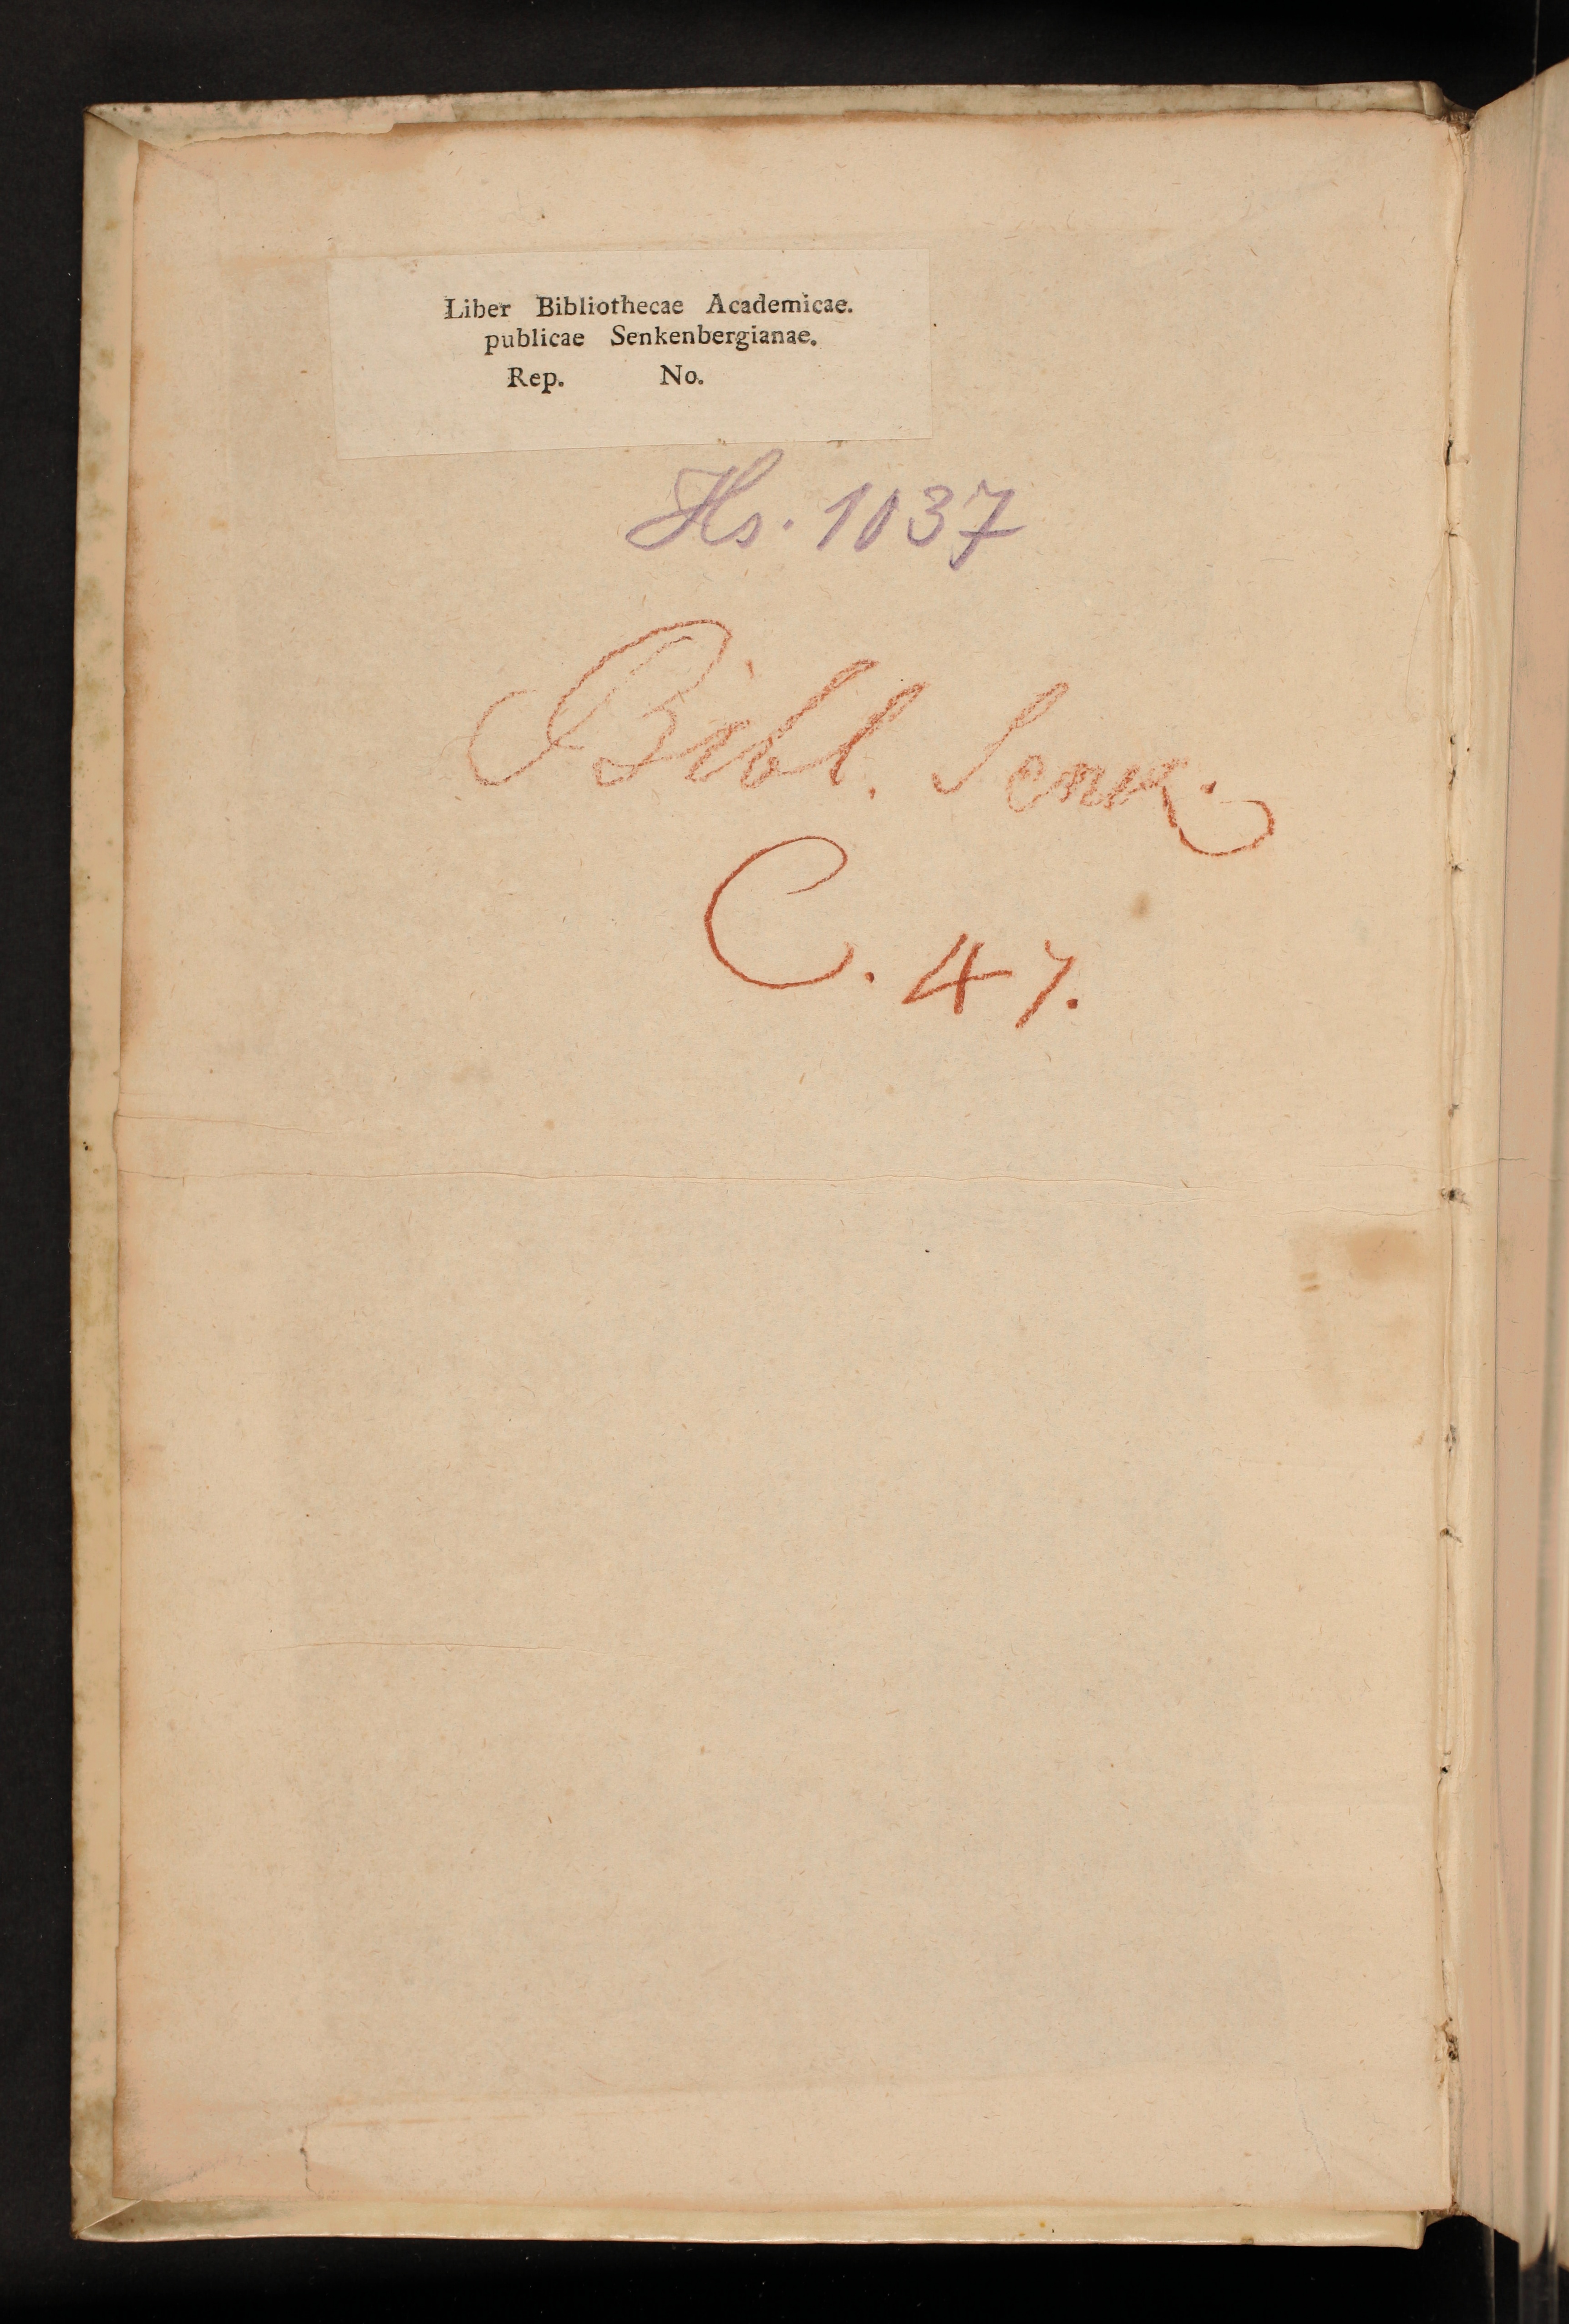 Liber Bibliothecae Academicae.
publicae Senkenbergianae.
Rep. No.
Hs. 1037
Bibl. Senk.
C. 47.